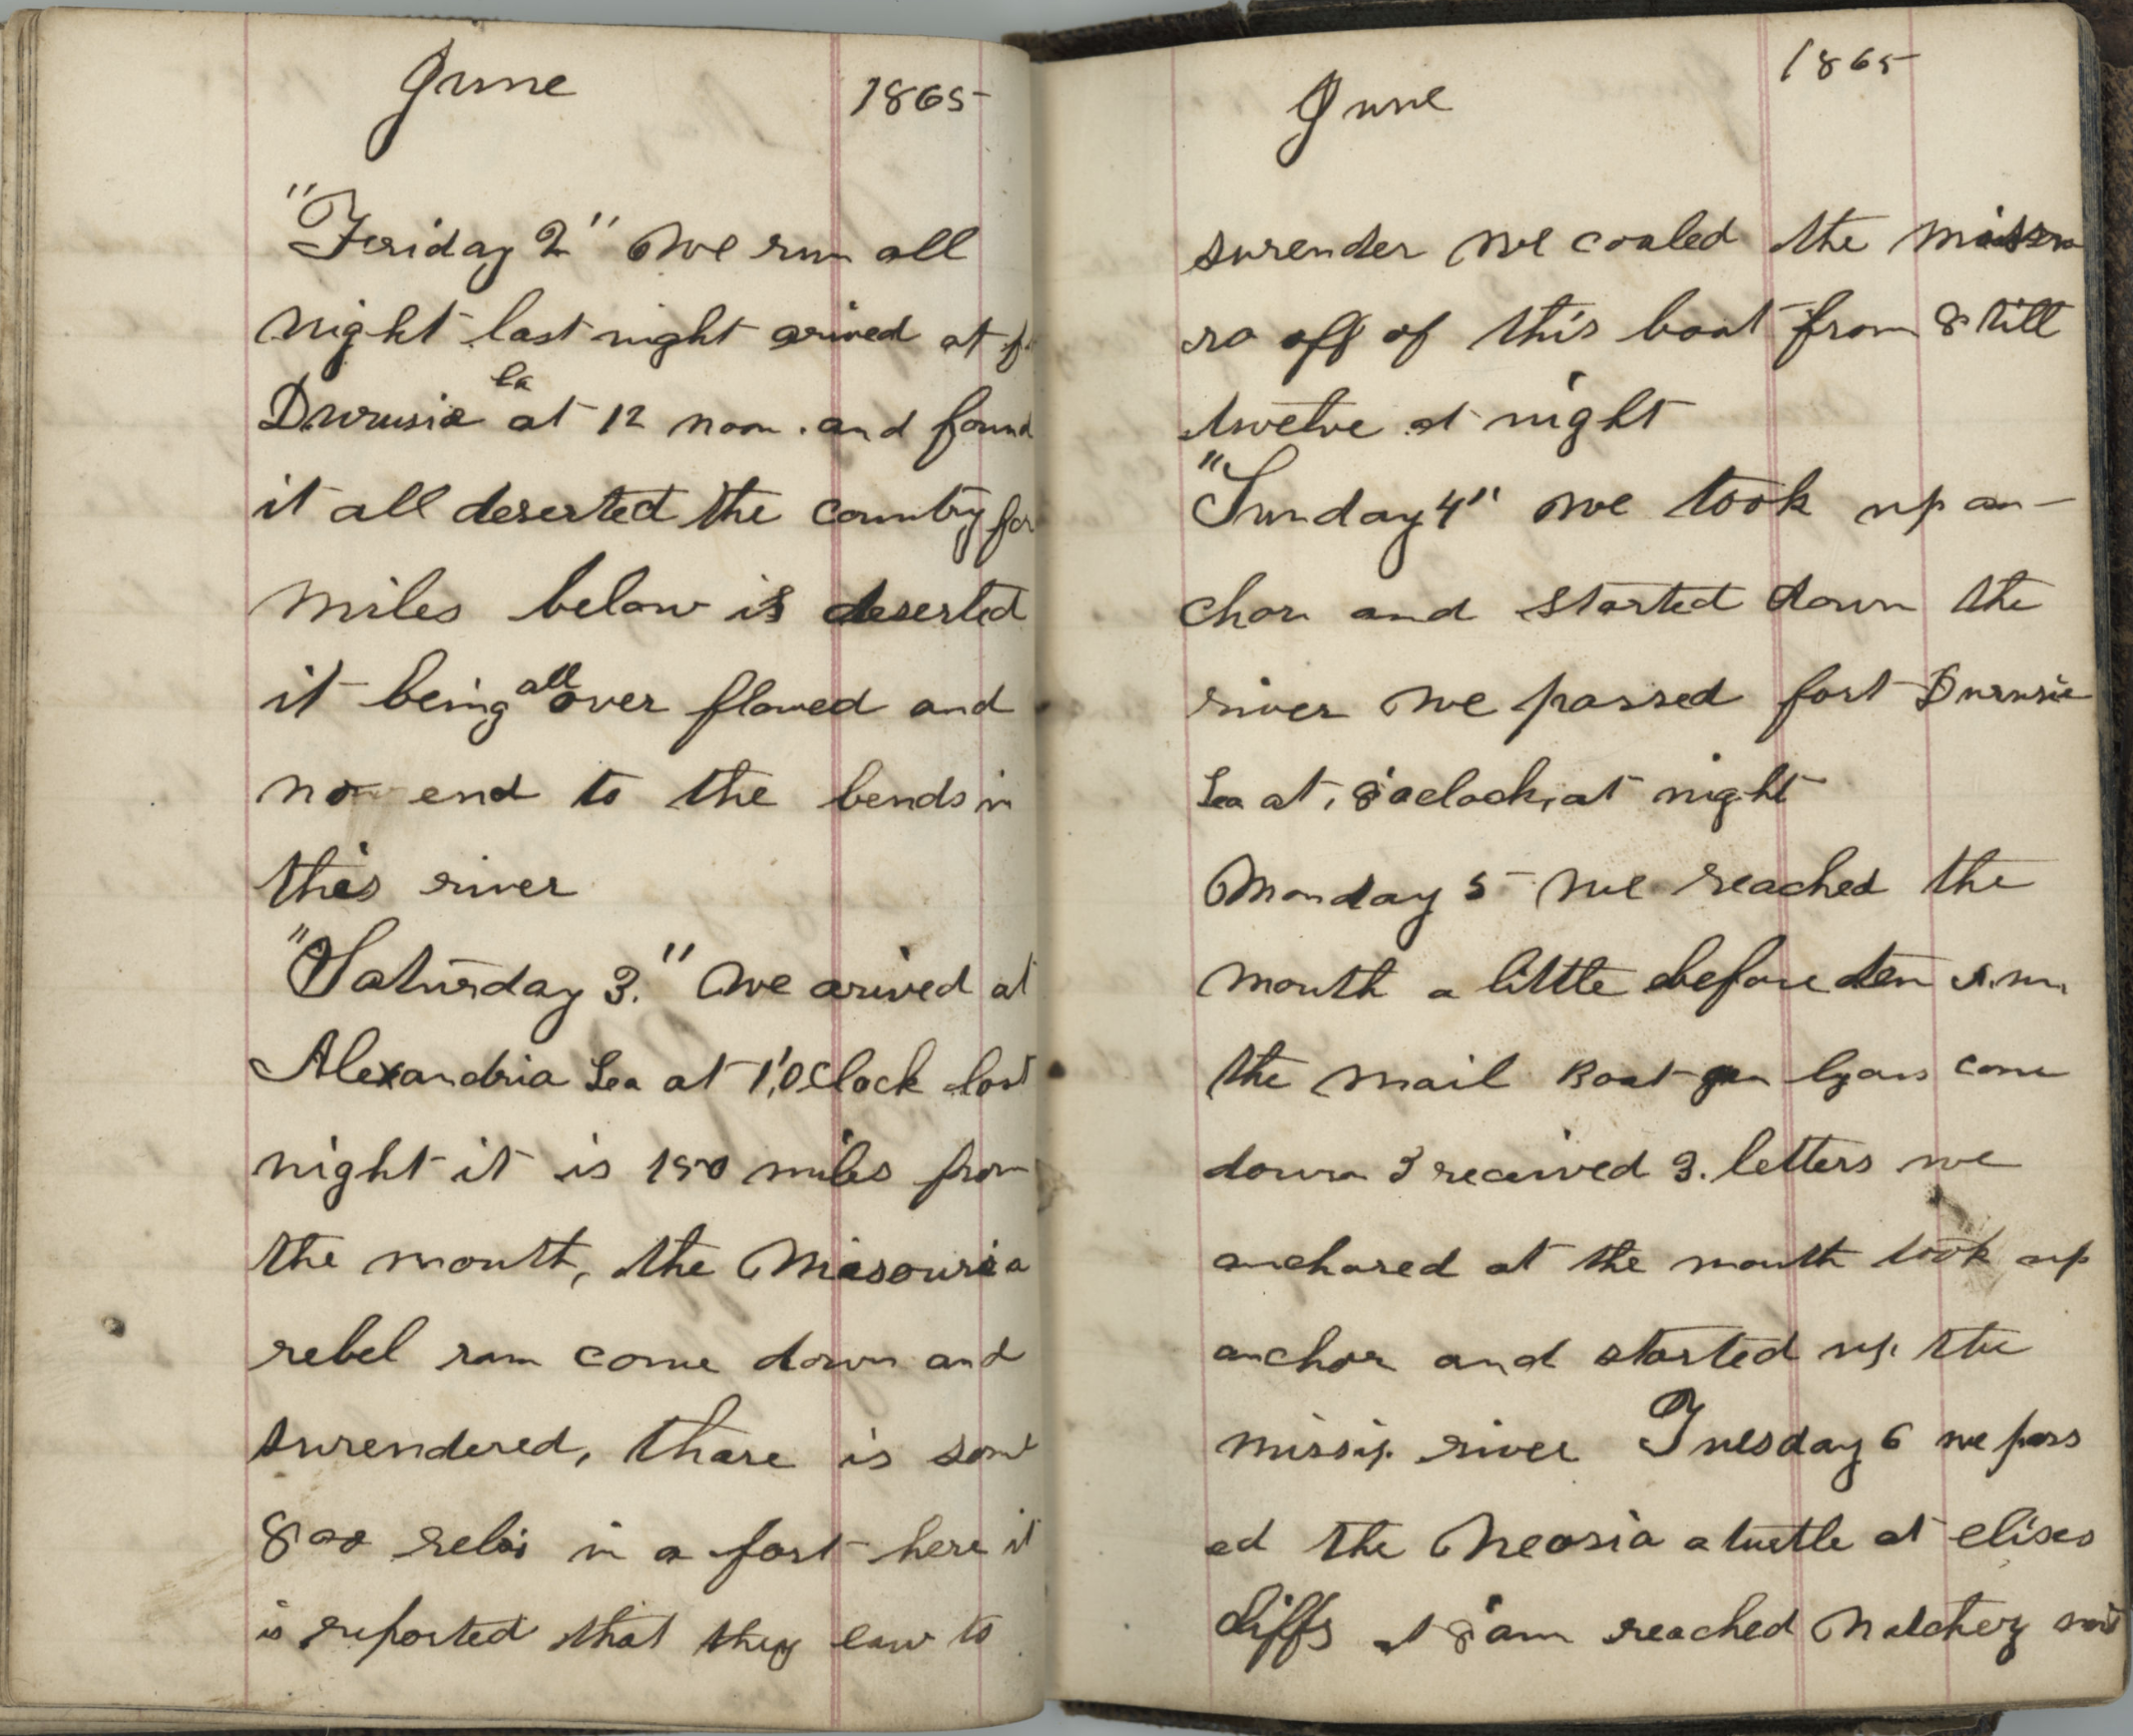 June 1865
"Feriday 2" We run all
night last night arived at f
Drurusie La at 12 noon. and found
it all deserted the country for
miles below is deserted
it being all over flowed and
no end to the bends in
this river
"Saturday 3." We arived at
Alexandria Lea at 1,'0Clock last
night it is 150 miles from
the mouth, the Missouria
rebel ram come down and
surendered, thare is some
800 rebs in a fort here it
is reported that they eaw to
June 1865
surender we coaled the missu
ra off of this boat from 8 till
twelve at night
"Sunday 4" we took up an-
chor and started down the
river we passed fort Drurusie
Lea at, 8'oclock, at night
Monday 5 we reached the
mouth a little before ten A.m,
the mail Boat gen lyans come
down I received 3. letters we
anchared at the mouth took up
anchor and started up the
missip. river Tuesday 6 we pass
ed the Neosia a turtle at elises
cliffs at 8 am reached Natchez